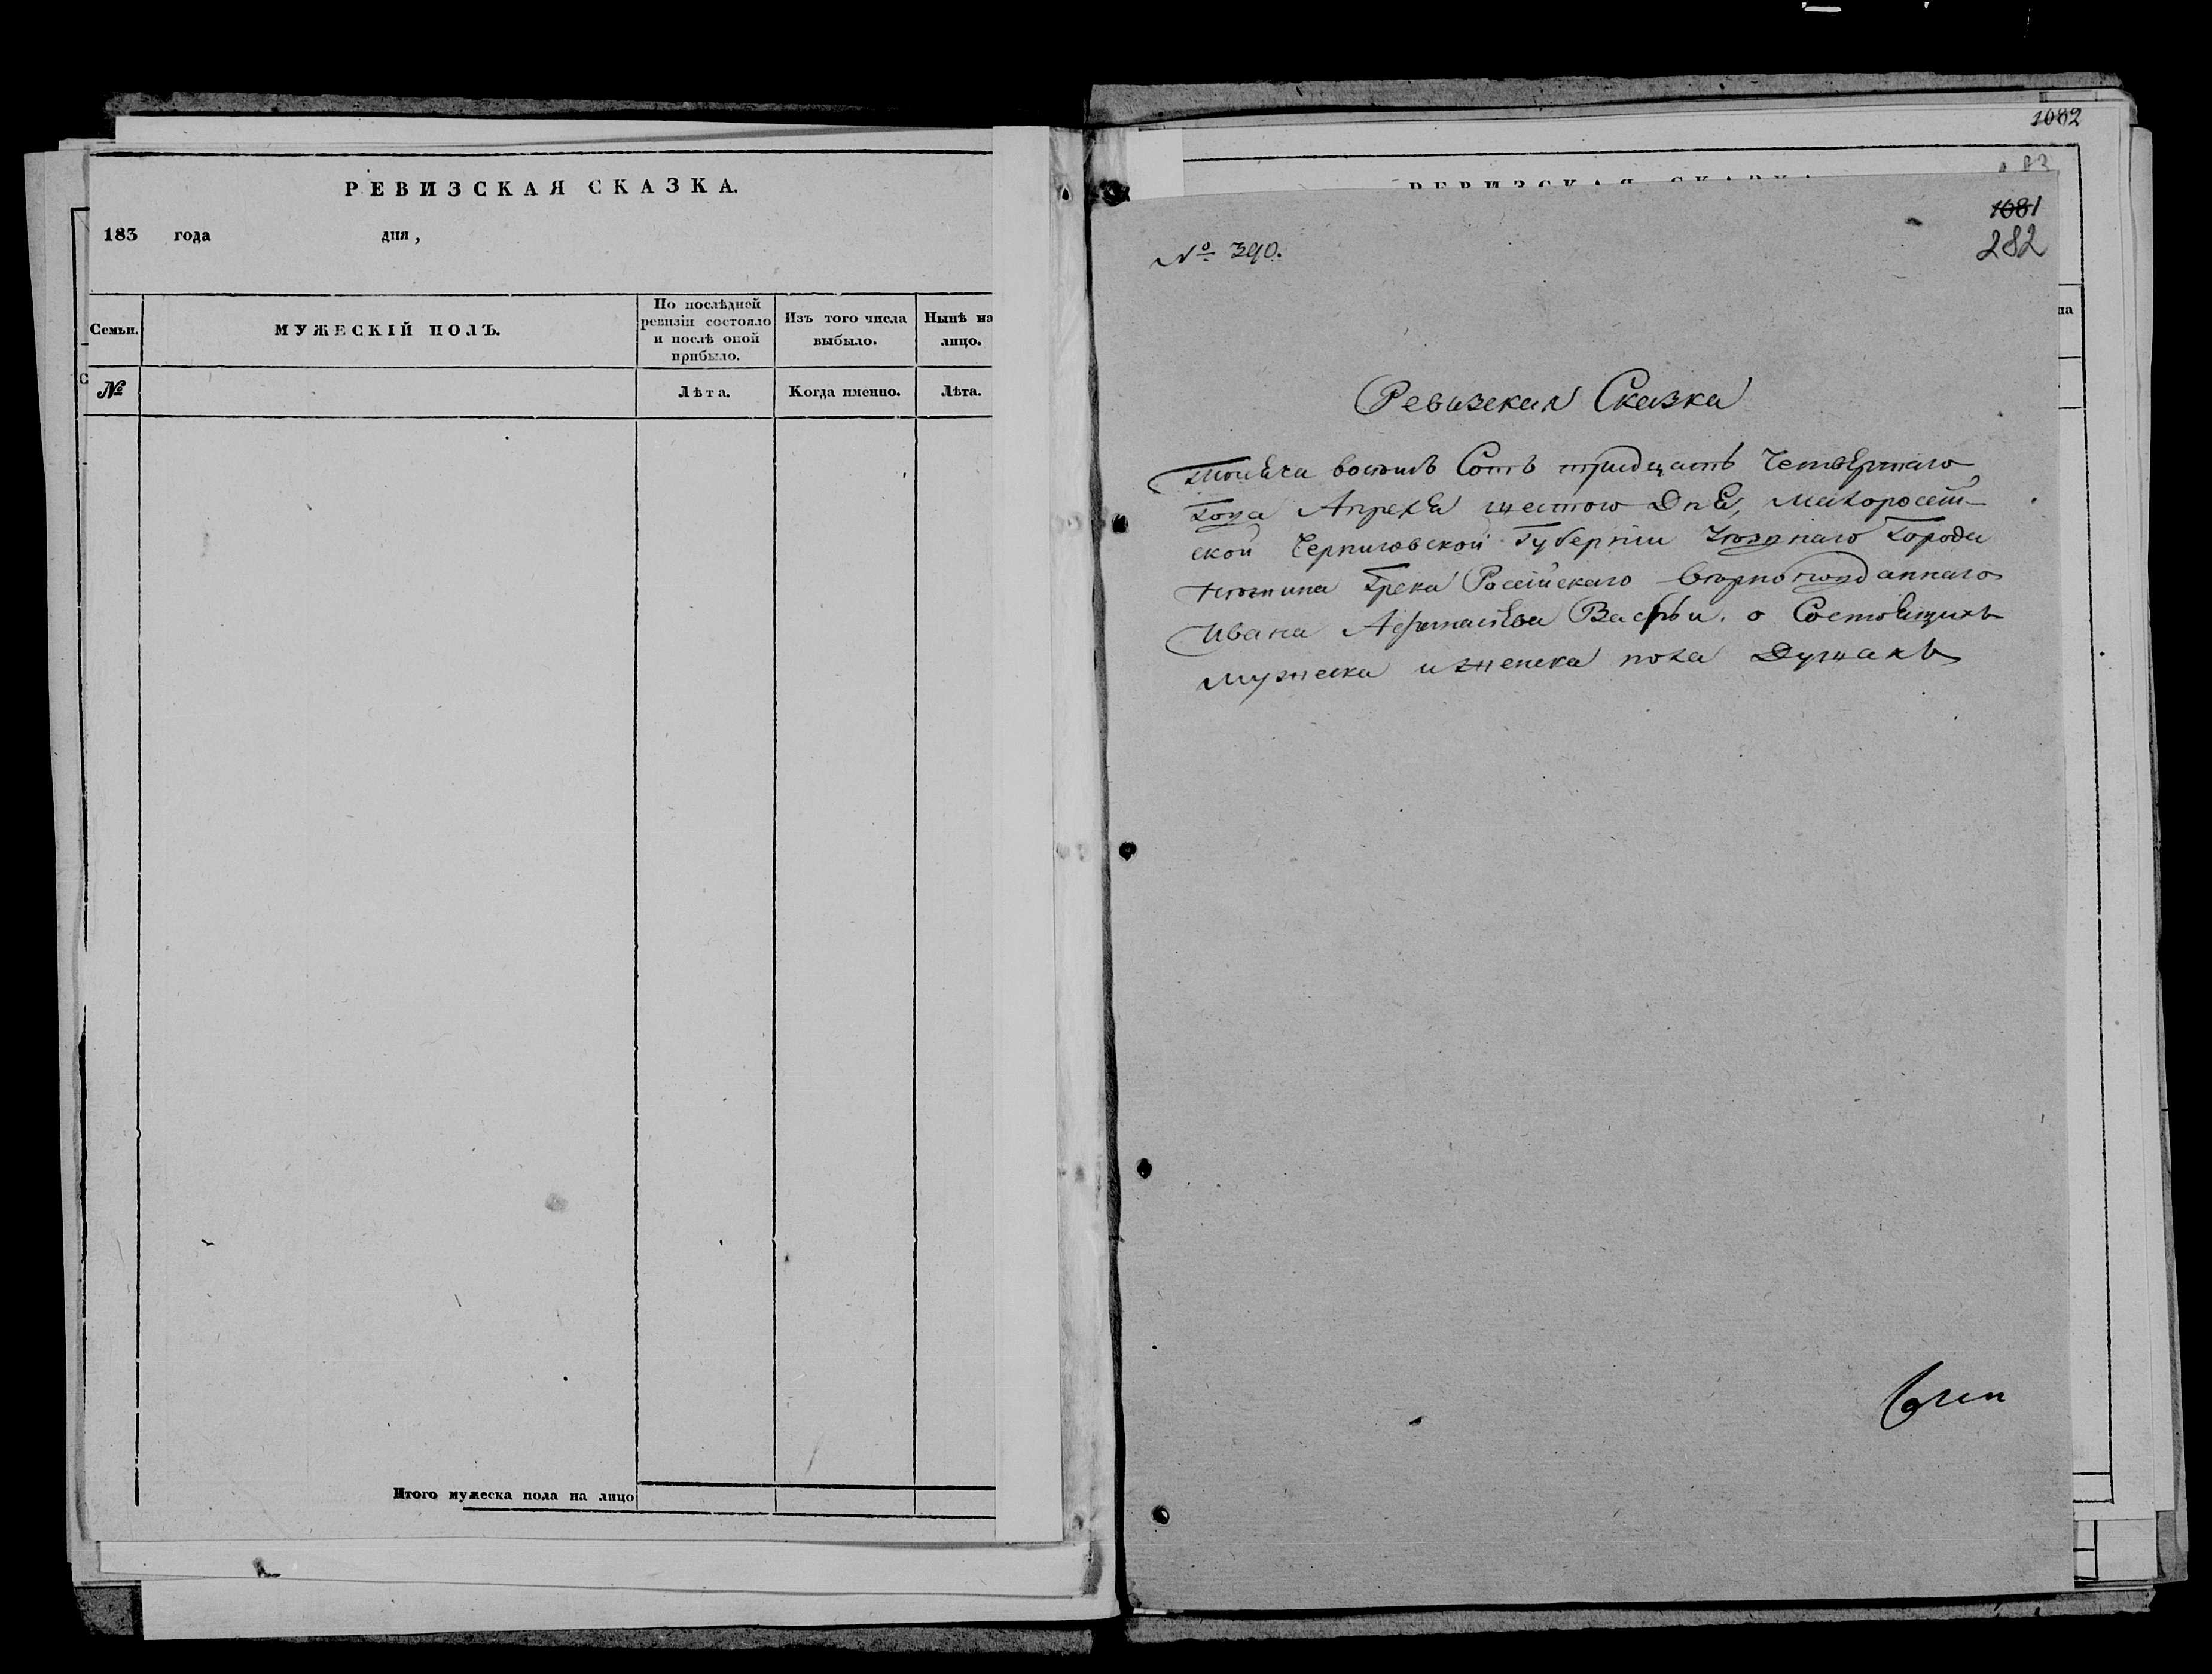 РЕВИЗСКАЯ СКАЗКА.
183 года дня,
Семьи.
МУЖЕСКІЙ ПОЛЪ.
По послѣдней
ревизіи состояло
и послѣ оной
прибыло.
Изъ того числа
выбыло.
Нынѣ на
лицо.
№
Лѣта.
Когда именно.
Лѣта.
Итого мужеска пола на лицо
1082
РЕВИЗСКАЯ СКАЗКА
1081
282
№ 390.
Ревизская Сказка
Тысяча восемь Сотъ тридцать Четвертаго
Года Апреля шестого Дня, Малоросей-
ской Черниговской Губерніи Уезднаго Города
Нежина Грека Росейскаго верноподданнаго
Ивана Афанасіева о Состоящихъ
мужеска и женска пола Душахъ